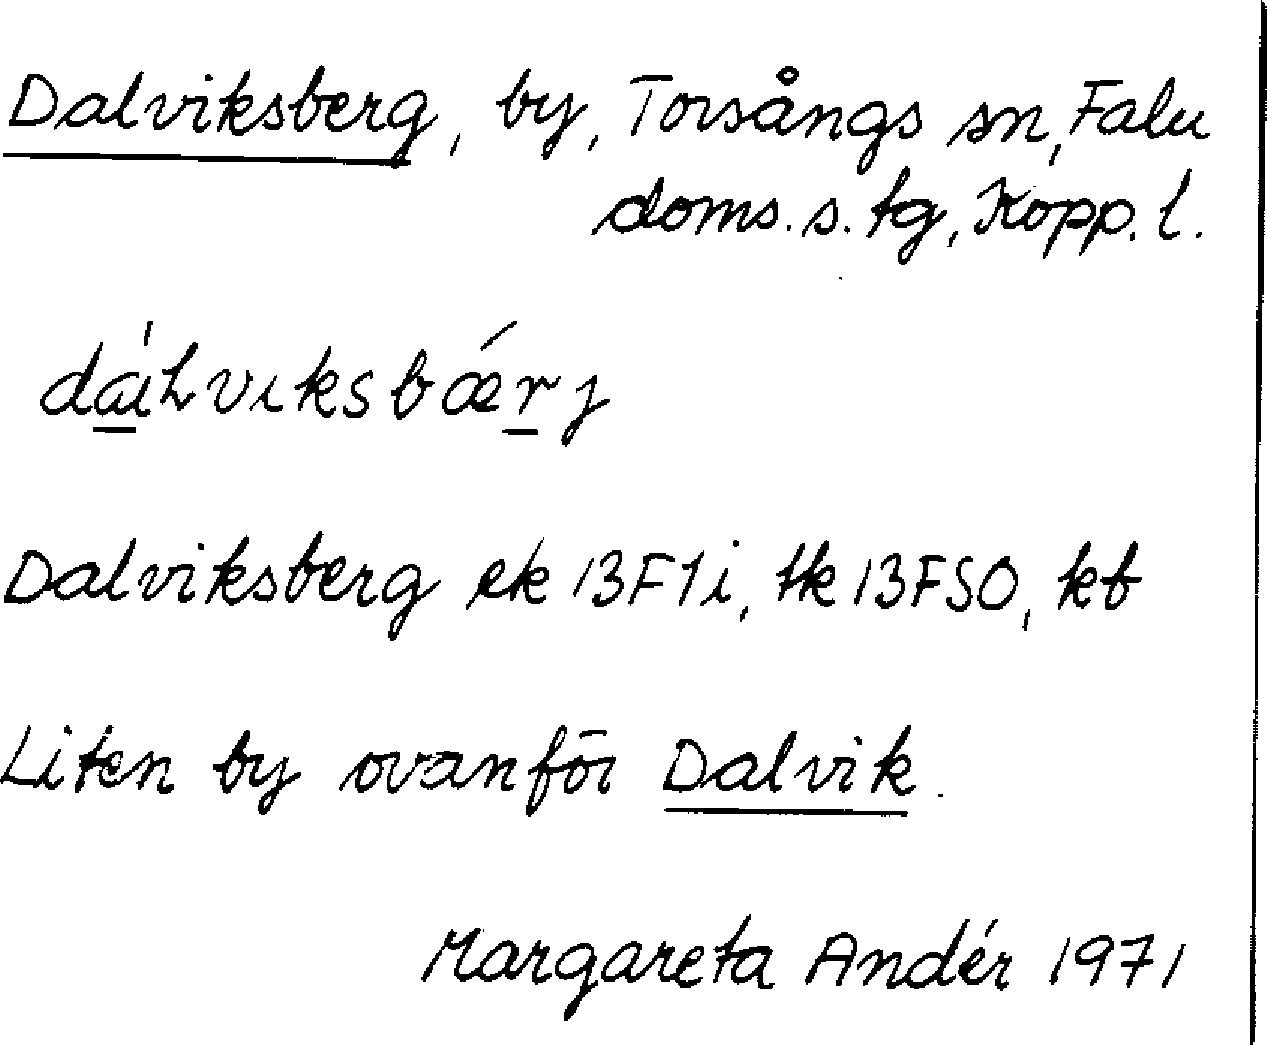 Dalviksberg, by, Torsångs sn, Falu
doms.s. tg, Kopp. l.
dàLviksbǽrj
Dalviksberg ek 13F1i, tk 13FSO, kb
Liten by ovanför Dalvik.
Margareta Andér 1971